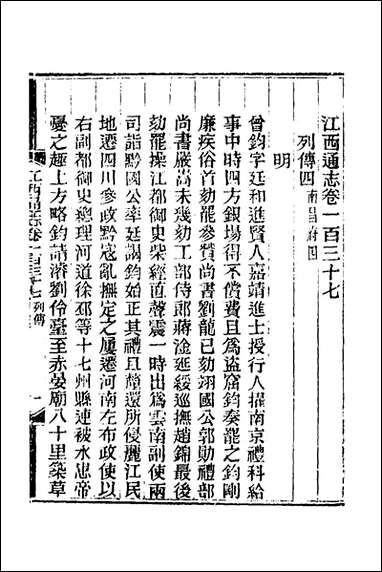 江西通志卷一百三十七
列傳四南昌府四
明
曾鈞字廷和進賢人嘉靖進士授行人擢南京禮科給
事中時四方銀場得不償費且爲盜窟鈞奏罷之鈞剛
廉疾俗首劾罷參贊尚書劉龍已劾翊國公郭勛禮部
尚書嚴嵩未幾劾工部侍郎蔣淦延綏巡撫趙錦最後
劾罷操江都御史柴經直聲震一時出爲雲南副使兩
司詣黔國公率廷謁鈞始正其禮且釐還所侵麗江民
地遷四川參政黔寇亂撫定之屢遷河南左布政使以
右副都御史總理河道徐邳等十七州縣連被水患帝
憂之趣上方略鈞請濬劉伶臺至赤晏廟八十里築草
江西通志卷一百三十七列傳
一